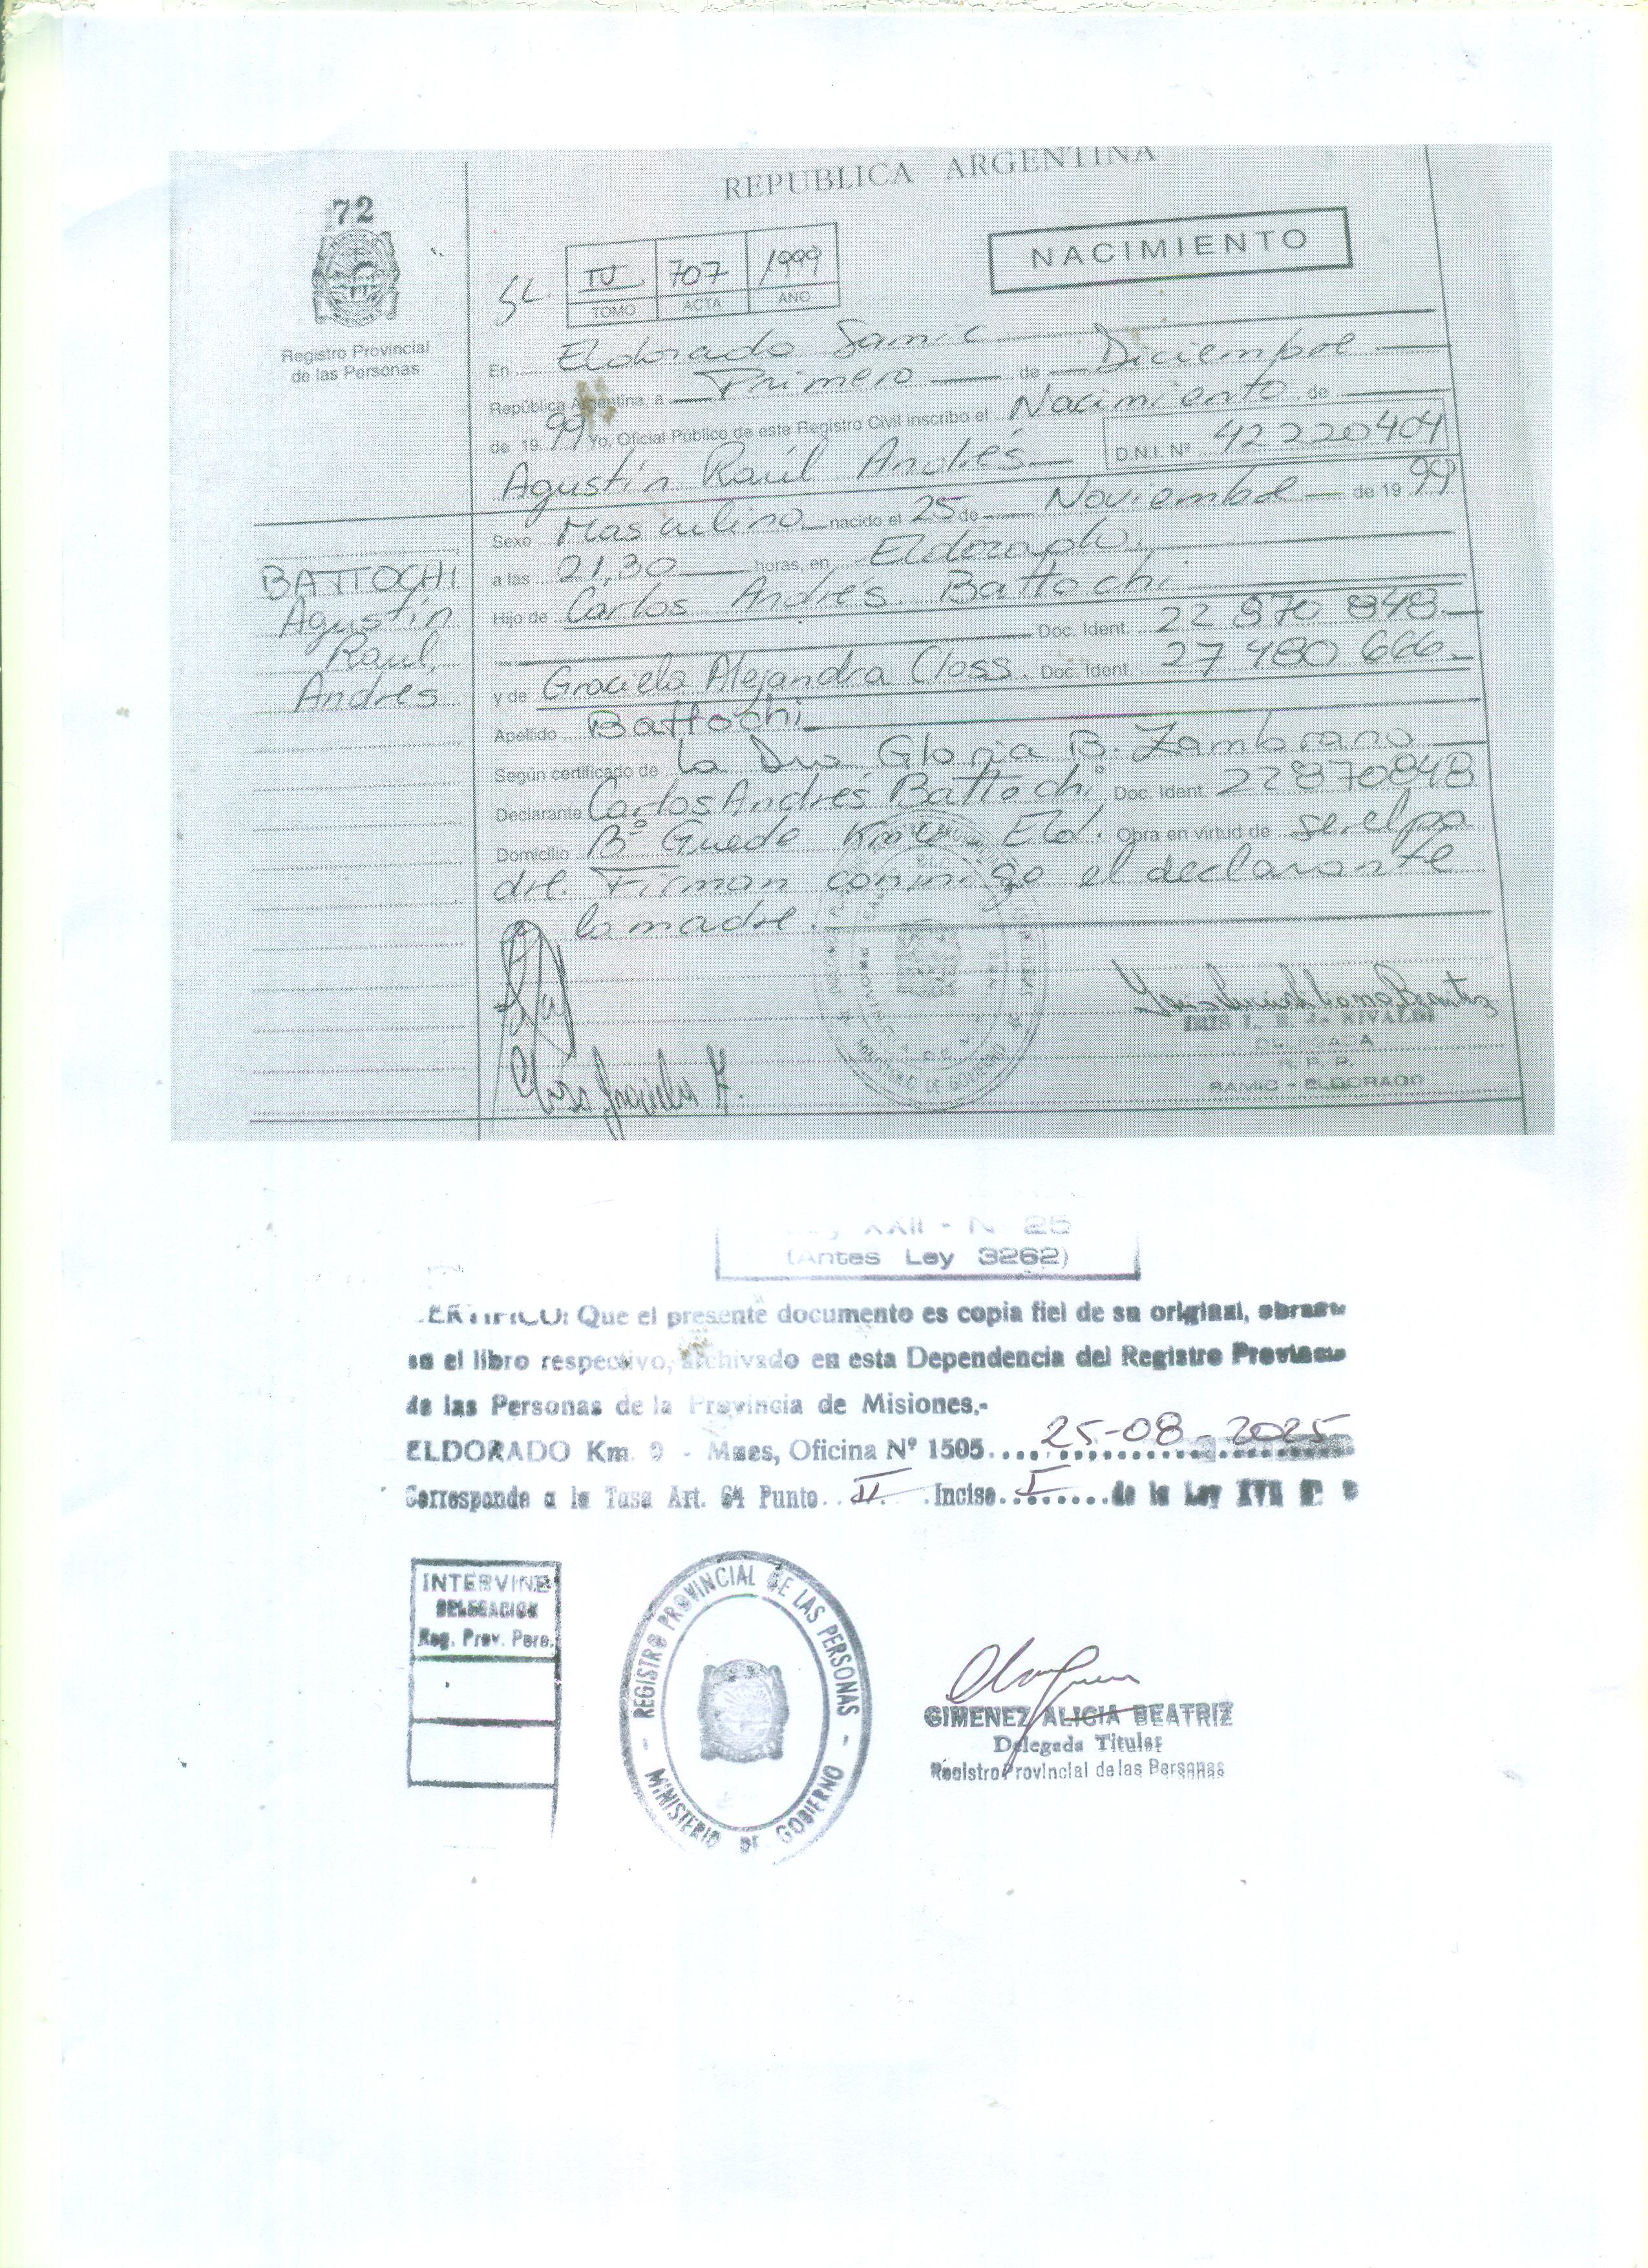 REPUBLICA ARGENTINA
72
MISIONES
Registro Provincial
de las Personas
SL.
IV 707 1999
TOMO ACTA AÑO
NACIMIENTO
En Eldorado Samic
República Argentina, a Primero de Diciembre
de 19 99 Yo, Oficial Público de este Registro Civil inscribo el Nacimiento de
Agustín Raúl Andrés D.N.I. Nº 42220404
Sexo Masculino nacido el 25 de Noviembre de 19 99
a las 21,30 horas, en Eldorado.
Hijo de Carlos Andrés Battochi
Doc. Ident. 22 870 848
y de Graciela Alejandra Closs. Doc. Ident. 27 480 666
Apellido Battochi
Según certificado de la Dra Gloria B. Zambrano
Declarante Carlos Andrés Battochi Doc. Ident. 22870848
Domicilio Bº Guede Eld. Obra en virtud de ser el pa
dre. Firman conmigo el declarante
la madre.
BATTOCHI
Agustín
Raúl,
Andrés
MINISTERIO DE GOBIERNO
IRIS L. B. de RIVALDI
DELEGADA
R. P. P.
SAMIC - ELDORADO
Closs Graciela A.
XXII - N 25
(Antes Ley 3262)
CERTIFICO: Que el presente documento es copia fiel de su original, obrante
en el libro respectivo, archivado en esta Dependencia del Registro Provincial
de las Personas de la Provincia de Misiones.-
ELDORADO Km. 9 - Mnes, Oficina Nº 1505.... 25-08-2025
Corresponde a la Tasa Art. 64 Punto.. II .Inciso. I ....de la Ley XVII
INTERVINE
DELEGACION
Reg. Prov. Pers.
REGISTRO PROVINCIAL DE LAS PERSONAS
MINISTERIO DE GOBIERNO
GIMENEZ ALICIA BEATRIZ
Delegada Titular
Registro Provincial de las Personas